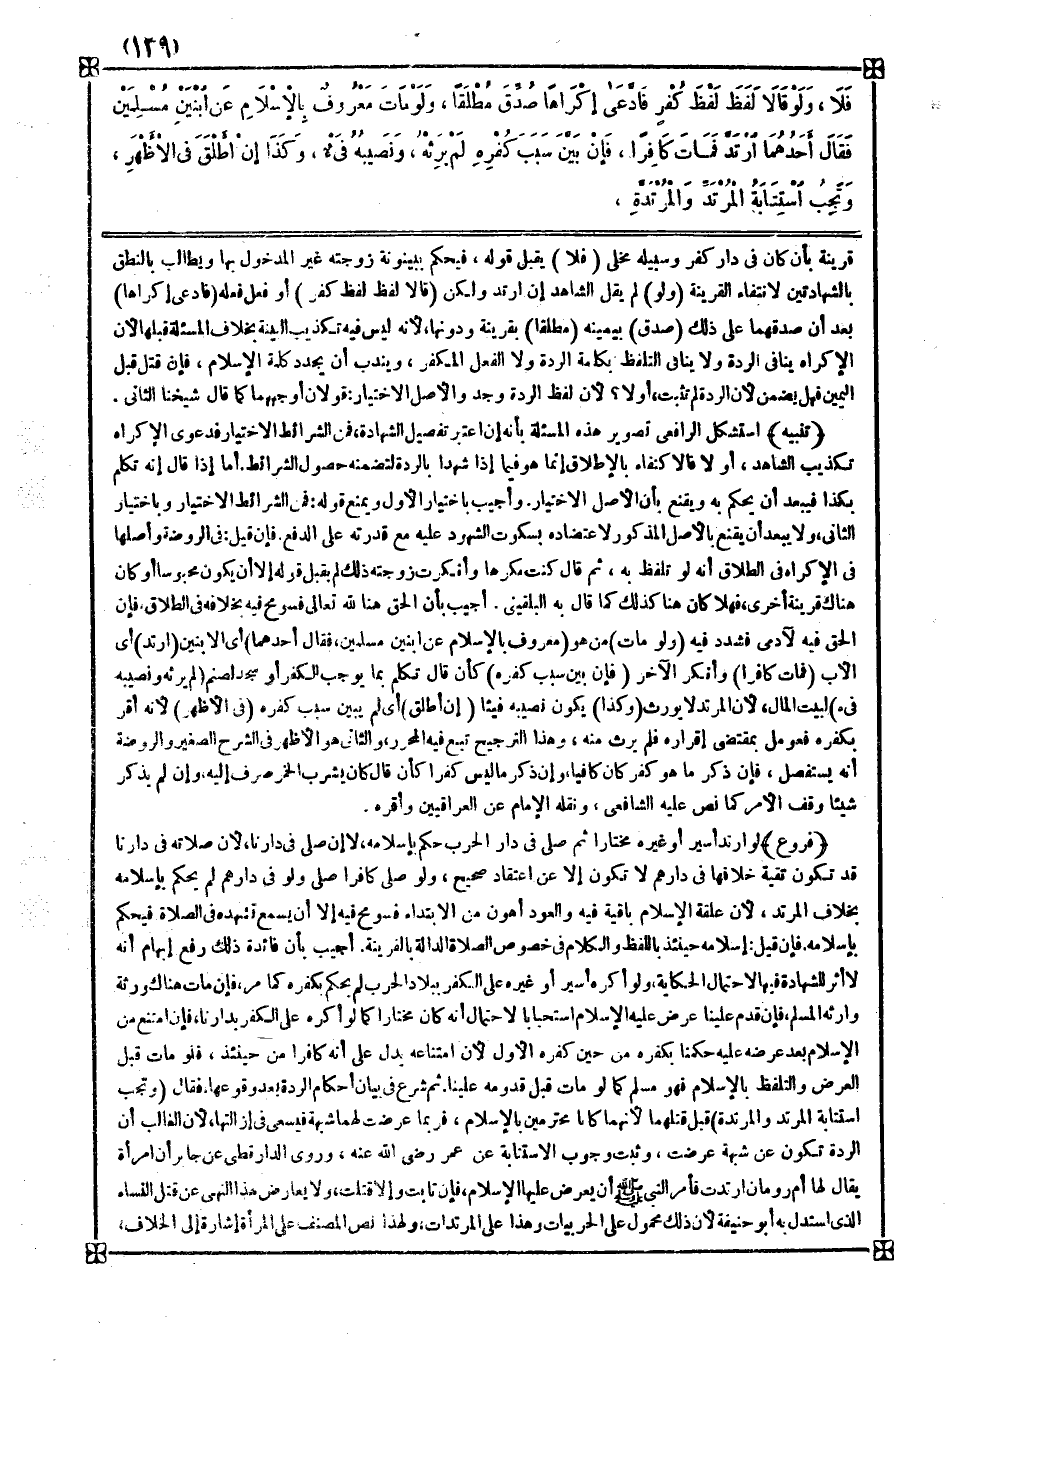 (١٣٩)
فَلَا ، وَلَوْ قَالَا لَفَظَ لَفْظَ كُفْرٍ فَادَّعَىٰ إِكْرَاهًا صُدِّقَ مُطْلَقًا ، وَلَوْ مَاتَ مَعْرُوفٌ بِالْإِسْلَامِ عَنِ ابْنَيْنِ مُسْلِمَيْنِ
فَقَالَ أَحَدُهُمَا ارْتَدَّ فَمَاتَ كَافِرًا ، فَإِنْ بَيَّنَ سَبَبَ كُفْرِهِ لَمْ يَرِثْهُ ، وَنَصِيبُهُ فَيْءٌ ، وَكَذَا إِنْ أَطْلَقَ فِى الْأَظْهَرِ ،
وَتَجِبُ اسْتِتَابَةُ الْمُرْتَدِّ وَالْمُرْتَدَّةِ ،
قرينة بأن كان فى دار كفر وسبيله مخلى ( فلا ) يقبل قوله ، فيحكم ببينونة زوجته غير المدخول بها ويطالب بالنطق
بالشهادتين لانتفاء القرينة (ولو) لم يقل الشاهد إن ارتد ولكن (قالا لفظ لفظ كفر ) أو فعل فعله (فادعى إكراها)
بعد أن صدقهما على ذلك (صدق) بيمينه (مطلقا) بقرينة ودونها، لأنه ليس فيه تكذيب البينة بخلاف المسئلة قبلها لأن
الإكراه ينافى الردة ولا ينافى التلفظ بكلمة الردة ولا الفعل المكفر ، ويندب أن يجدد كلمة الإسلام ، فإن قتل قبل
اليمين فهل يضمن لأن الردة لم تثبت، أولا؟ لأن لفظ الردة وجد والأصل الاختيار: قولان أوجههما كما قال شيخنا الثانى .
﴿تنبيه﴾ استشكل الرافعى تصوير هذه المسئلة بأنه إن اعتبر تفصيل الشهادة، فمن الشرائط الاختيار فدعوى الإكراه
تكذيب الشاهد ، أو لا فالاكتفاء بالإطلاق إنما هو فيما إذا شهدا بالردة لتضمنه حصول الشرائط. أما إذا قال إنه تكلم
بكذا فيبعد أن يحكم به ويقنع بأن الأصل الاختيار. وأجيب باختيار الأول ويمنع قوله: فمن الشرائط الاختيار وباختيار
الثانى، ولا يبعد أن يقنع بالأصل المذكور لاعتضاده بسكوت الشهود عليه مع قدرته على الدفع. فإن قيل: فى الروضة وأصلها
فى الإكراه فى الطلاق أنه لو تلفظ به ، ثم قال كنت مكرها وأنكرت زوجته ذلك لم يقبل قوله إلا أن يكون محبوسا أو كان
هناك قرينة أخرى، فهلا كان هنا كذلك كما قال به البلقينى . أجيب بأن الحق هنا لله تعالى فسومح فيه بخلافه فى الطلاق، فإن
الحق فيه لآدمى فشدد فيه (ولو مات) من هو (معروف بالإسلام عن ابنين مسلمين، فقال أحدهما) أى الابنين (ارتد) أى
الأب (فمات كافرا) وأنكر الآخر ( فإن بين سبب كفره) كأن قال تكلم بما يوجب الكفر أو سجد لصنم (لم يرثه ونصيبه
فىء) لبيت المال، لأن المرتد لا يورث (وكذا) يكون نصيبه فيئا ( إن أطلق) أى لم يبين سبب كفره (فى الأظهر ) لأنه أقر
بكفره فعومل بمقتضى إقراره فلم يرث منه ، وهذا الترجيح تبع فيه المحرر، والثانى هو الأظهر فى الشرح الصغير والروضة
أنه يستفصل ، فإن ذكر ما هو كفر كان كافيا، وإن ذكر ما ليس كفرا كأن قال كان يشرب الخمر صرف إليه، وإن لم يذكر
شيئا وقف الأمر كما نص عليه الشافعى ، ونقله الإمام عن العراقيين وأقره .
﴿فروع﴾ لو ارتد أسير أو غيره مختارا ثم صلى فى دار الحرب حكم بإسلامه، لا إن صلى فى دارنا، لأن صلاته فى دارنا
قد تكون تقية خلافها فى دارهم لا تكون إلا عن اعتقاد صحيح ، ولو صلى كافرا صلى ولو فى دارهم لم يحكم بإسلامه
بخلاف المرتد ، لأن علقة الإسلام باقية فيه والعود أهون من الابتداء فسومح فيه إلا أن يسمع تشهده فى الصلاة فيحكم
بإسلامه. فإن قيل: إسلامه حينئذ باللفظ والكلام فى خصوص الصلاة الدالة بالقرينة. أجيب بأن فائدة ذلك رفع إبهام أنه
لا أثر للشهادة فيها لاحتمال الحكاية، ولو أكره أسير أو غيره على الكفر ببلاد الحرب لم يحكم بكفره كما مر، فإن مات هناك ورثة
وارثه المسلم، فإن قدم علينا عرض عليه الإسلام استحبابا لاحتمال أنه كان مختارا كما لو أكره على الكفر بدارنا، فإن امتنع من
الإسلام بعد عرضه عليه حكمنا بكفره من حين كفره الأول لأن امتناعه يدل على أنه كافرا من حينئذ ، فلو مات قبل
العرض والتلفظ بالإسلام فهو مسلم كما لو مات قبل قدومه علينا. ثم شرع فى بيان أحكام الردة بعد وقوعها. فقال (وتجب
استتابة المرتد والمرتدة) قبل قتلهما لأنهما كانا محترمين بالإسلام ، فربما عرضت لهما شبهة فيسعى فى إزالتها، لأن الغالب أن
الردة تكون عن شبهة عرضت ، وثبت وجوب الاستتابة عن عمر رضى الله عنه ، وروى الدارقطى عن جابر أن امرأة
يقال لها أم رومان ارتدت فأمر النبى ﷺ أن يعرض عليها الإسلام، فإن تابت وإلا قتلت، ولا يعارض هذا النهى عن قتل النساء
الذى استدل به أبو حنيفة لأن ذلك محمول على الحربيات وهذا على المرتدات، ولهذا نص المصنف على المرأة إشارة إلى الخلاف،